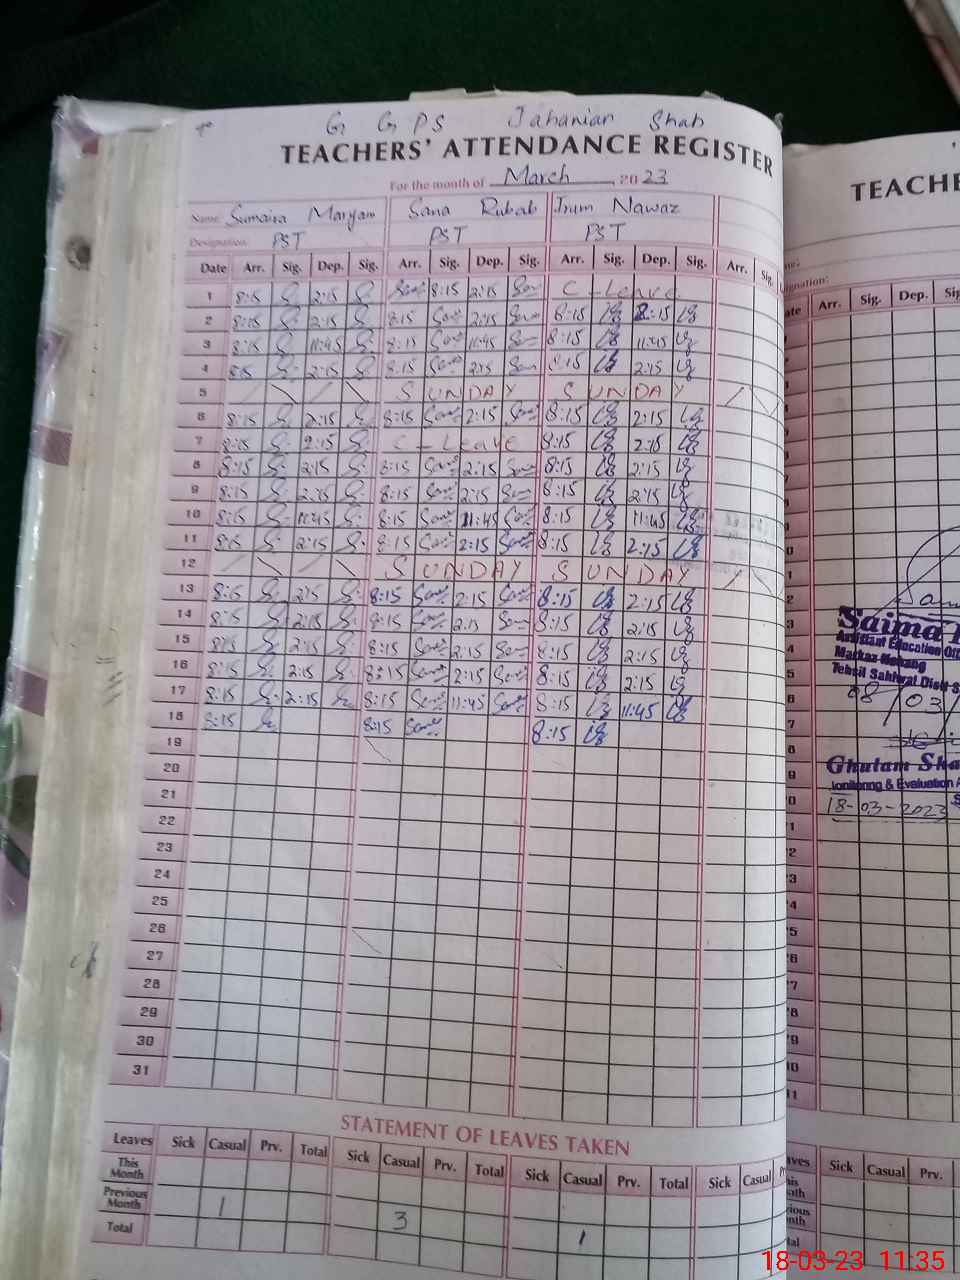 G G P S Jahanian Shah
TEACHERS' ATTENDANCE REGISTER
For the month of March 2023
Name Sumaira Maryam Sana Rubab Irum Nawaz
Designation PST PST PST
Date Arr. Sig. Dep. Sig. Arr. Sig. Dep. Sig. Arr. Sig. Dep. Sig. Arr. Sig.
1 8:15 2:15 8:15 2:15 C - Leave
2 8:15 2:15 8:15 2:15 8:15 2:15
3 8:15 11:45 8:15 11:45 8:15 11:45
4 8:15 2:15 8:15 2:15 8:15 2:15
5 SUNDAY SUNDAY
6 8:15 2:15 8:15 2:15 8:15 2:15
7 8:15 2:15 C - Leave 8:15 2:15
8 8:15 2:15 8:15 2:15 8:15 2:15
9 8:15 2:15 8:15 2:15 8:15 2:15
10 8:15 11:45 8:15 11:45 8:15 11:45
11 8:15 2:15 8:15 2:15 8:15 2:15
12 SUNDAY SUNDAY
13 8:15 2:15 8:15 2:15 8:15 2:15
14 8:15 2:15 8:15 2:15 8:15 2:15
15 8:15 2:15 8:15 2:15 8:15 2:15
16 8:15 2:15 8:15 2:15 8:15 2:15
17 8:15 2:15 8:15 11:45 8:15 11:45
18 8:15 8:15 8:15
19
20
21
22
23
24
25
26
27
28
29
30
31
STATEMENT OF LEAVES TAKEN
Leaves Sick Casual Prv. Total Sick Casual Prv. Total Sick Casual Prv. Total Sick Casual
This Month
Previous Month 1 3 1
Total
TEACHE
Arr. Sig. Dep.
Saima
Assistant Education Off
Markaz
Tehsil Sahiwal Distt
08/03
Ghulam Sha
Monitoring & Evaluation A
18-03-2023
Sick Casual Prv.
18-03-23 11:35